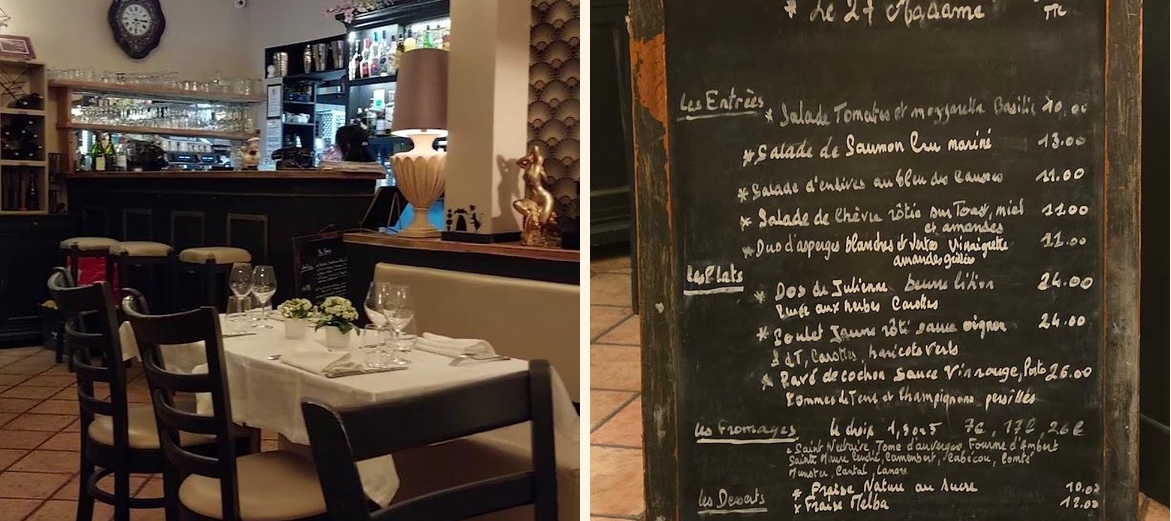 * Le 27 Madame
TTC
Les Entrées
* Salade Tomates et mozzarella Basilic 10.00
* Salade de Saumon Cru mariné 13.00
* Salade d'endives au bleu des Causses 11.00
* Salade de Chèvre rôtie sur Toast, miel 11.00
et amandes
* Duo d'asperges blanches et vertes Vinaigrette 11.00
amandes grillées
Les Plats
* Dos de Julienne beurre 24.00
aux herbes Carottes
* Poulet Jaune rôti sauce oignon 24.00
P d T, Carottes, haricots verts
* Pavé de cochon Sauce Vin rouge, Porto 26.00
Pommes de Terre et Champignons persillés
Les Fromages le choix 1,3 ou 5 7€, 17€, 26€
Saint Nectaire, Tome d'auvergne, Fourme d'Ambert
Sainte Maure, Camembert, Cabécou, Comté
Munster Cantal,
* Fraise Nature au Sucre 10.00
Les Desserts * Fraise Melba 12.00